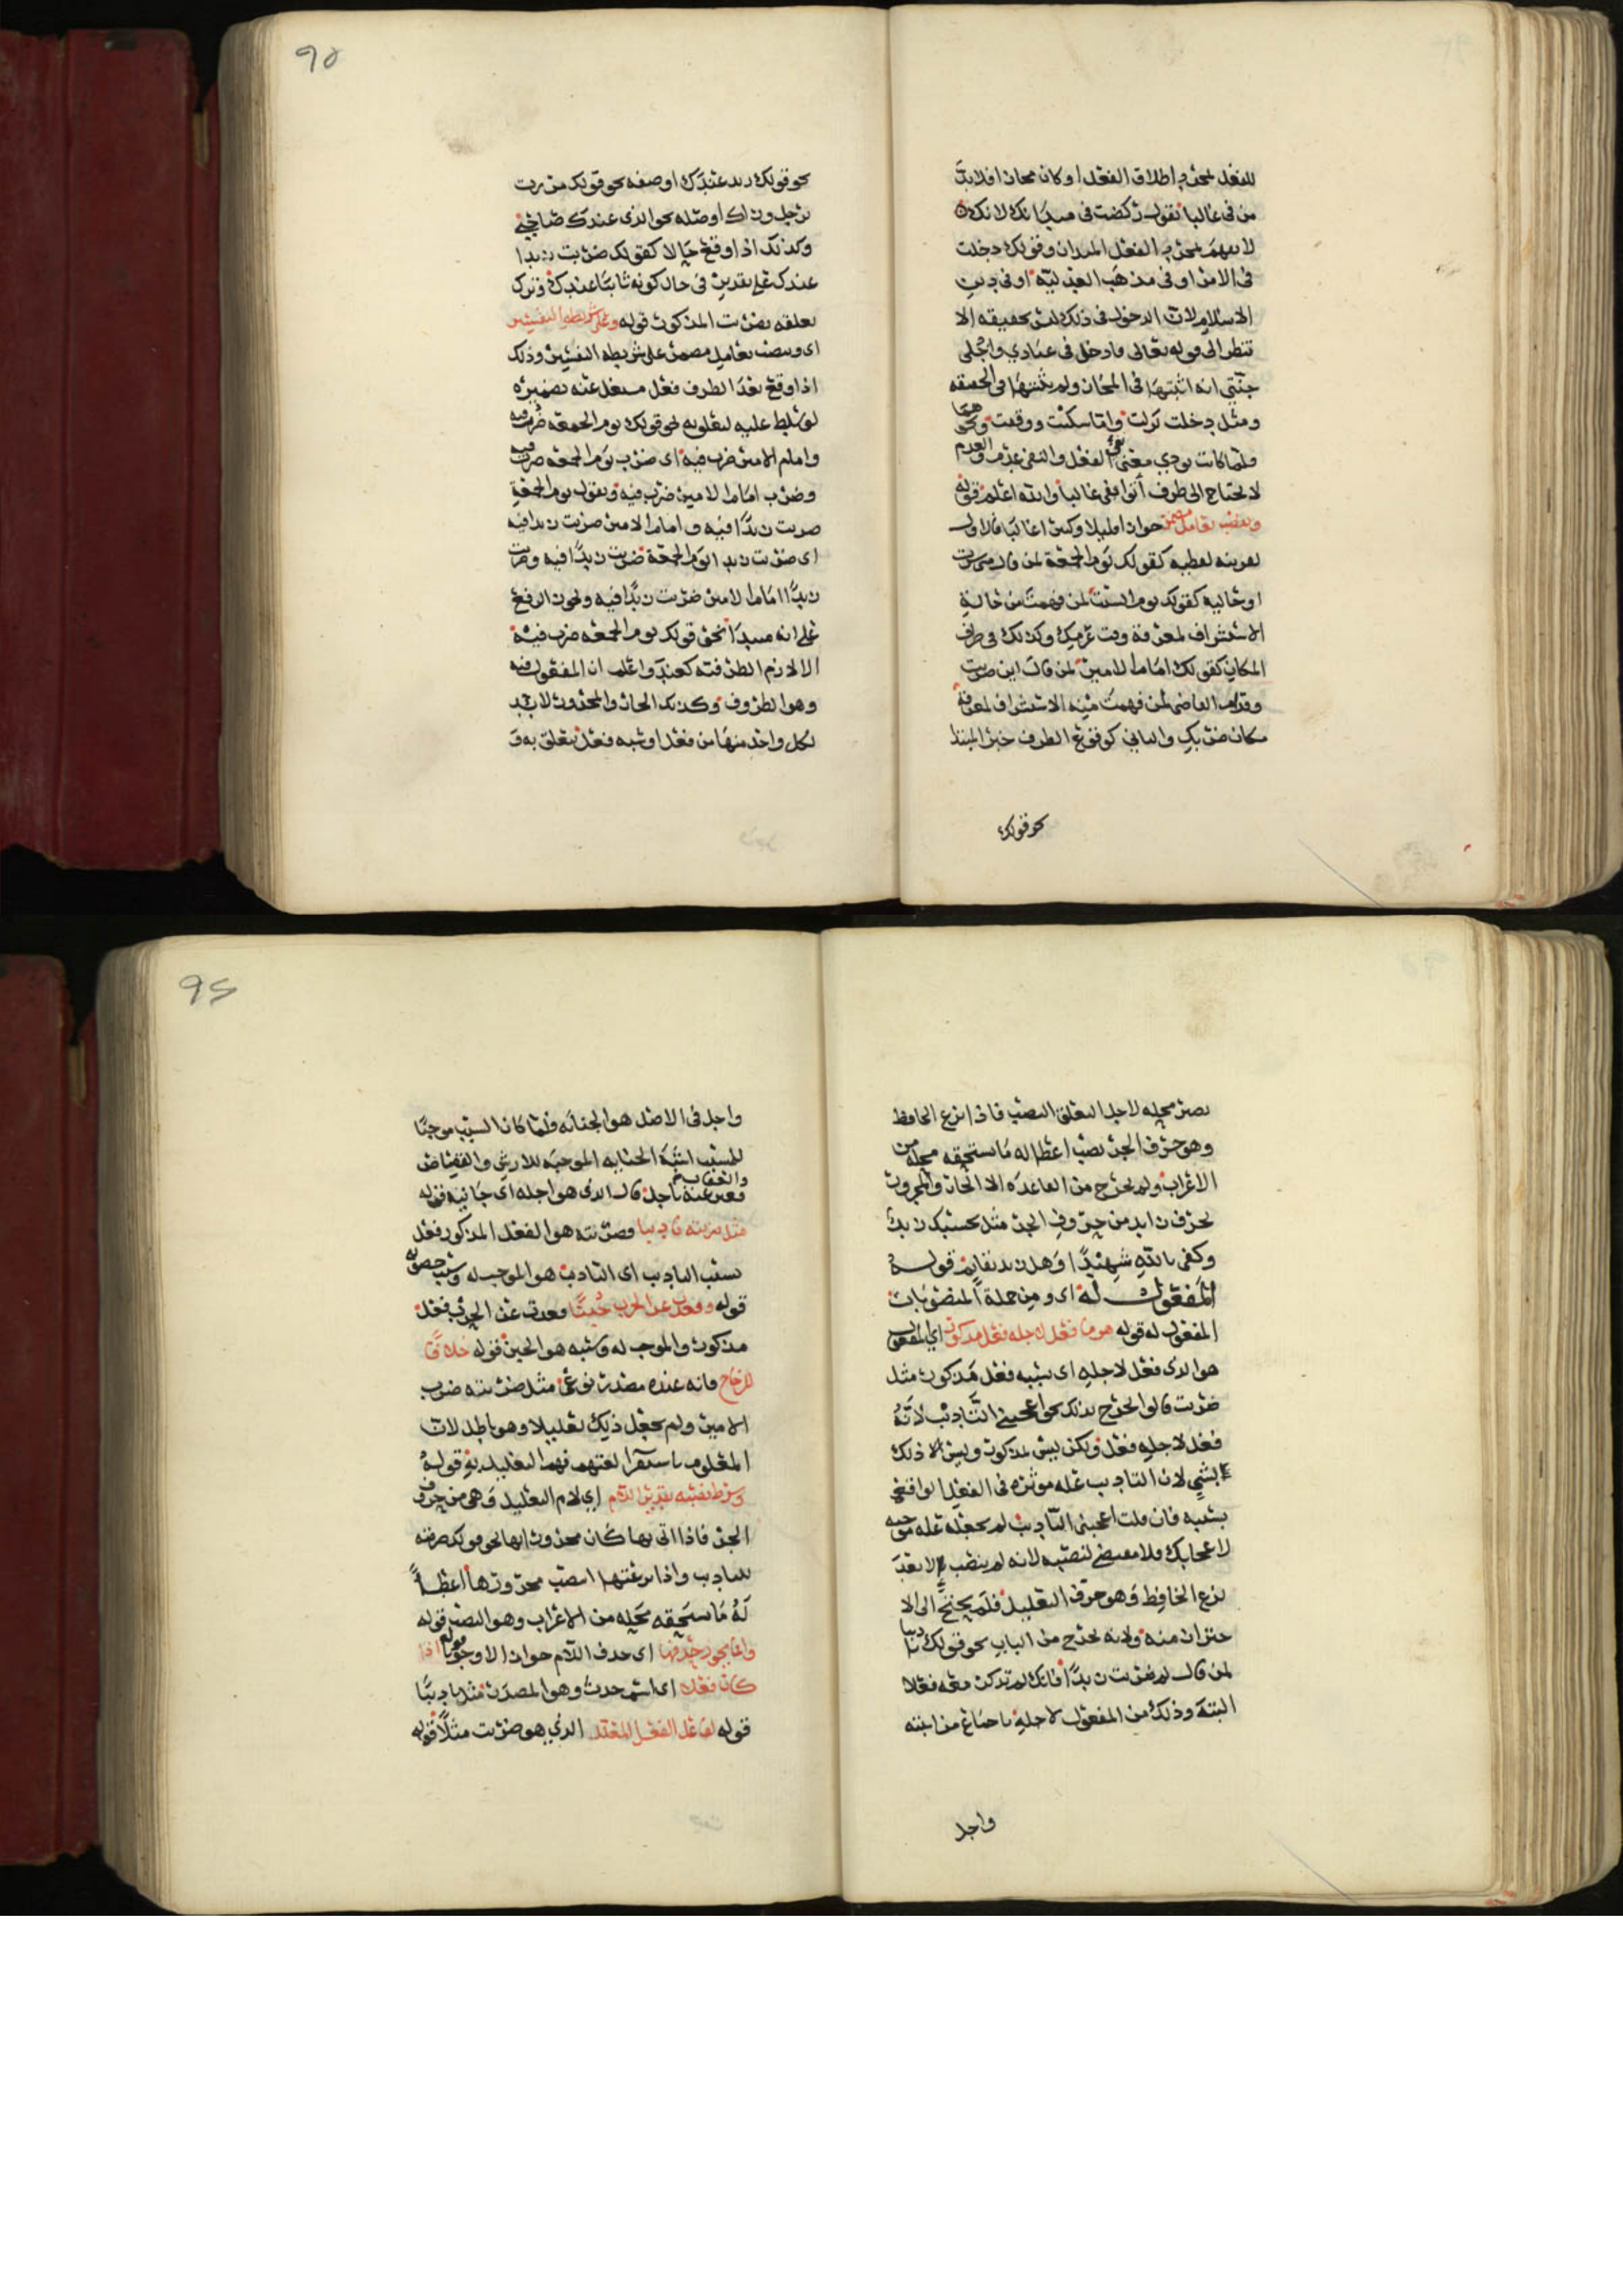 للفعل لمجرد اطلاق الفعل او كان مجازا فلابد
من في غالبا تقول ركضت في ميدانك لانك
لا يفهم بمجرد الفعل الميدان وقولك دخلت
في الامر او في مذهب العدلية او في دين
الاسلام لان الدخول في ذلك ليس بحقيقه الا
تنظر الى قوله تعالى فادخلي في عبادي وادخلي
جنتي انه اثبتها في المجاز ولم يثبتها في الحقيقه
ومثل دخلت نزلت واما سكنت ووقعت ونحوهما
فلما كانت تودي معنى نفي الفعل والنفي عدم والعدم
لا يحتاج الى ظرف اتوا بفي غالبا والله اعلم قوله
وينصب بعامل مضمر جوازا قليلا وكثيرا غالبا فالاول
لقرينه لفظيه كقولك يوم الجمعة لمن قال متى سرت
او حاليه كقولك يوم السبت لمن فهمت من حاله
الاستشراف لمعرفة وقت عزمك وكذلك في ظرف
المكان كقولك امام الامير لمن قال اين ضربت
وقدام القاضي لمن فهمت منه الاستشراف لمعرفة
مكان ضربك والثاني كوقوع الظرف خبر المبتدا
نحو قولك
٩٥
نحو قولك زيد عندك او صفه نحو قولك مررت
برجل وراك او صله نحو الذي عندك صالح
وكذلك اذا وقع حالا كقولك ضربت زيدا
عندك على تقدير في حال كونه ثابتا عندك وترك
تعلقه بضربت المذكور قوله وعلى شريطه التفسير
اي وينصب بعامل مضمر على شريطه التفسير وذلك
اذا وقع بعد الظرف فعل مشتغل عنه بضميره
لو سلط عليه لنصبه نحو قولك يوم الجمعة ضرب فيه
وامام الامير ضرب فيه اي ضرب يوم الجمعه ضرب فيه
وضرب امام الامير ضرب فيه وتقول يوم الجمعة
ضربت زيدا فيه وامام الامير ضربت زيدا فيه
اي ضربت زيدا يوم الجمعة ضربت زيدا فيه وضربت
زيدا امام الامير ضربت زيدا فيه ويجوز الرفع
على انه مبتدا نحو قولك يوم الجمعه ضرب فيه
الا لازم الظرفيه كعند واعلم ان المفعول فيه
وهو الظروف وكذلك الجار والمجرور لا بد
لكل واحد منها من فعل او شبه فعل يتعلق به و
يصير محله لاجل التعلق النصب فاذا نزع الخافض
وهو حرف الجر نصب اعطا له ما يستحقه محله من
الاعراب ولم يخرج من القاعده الا الجار والمجرور
بحرف زايد من حروف الجر مثل بحسبك زيد
وكفى بالله شهيدا وهل زيد بقايم قوله
المفعول له اي ومن جملة المنصوبات
المفعول له قوله هو ما فعل لاجله فعل مذكور اي المفعول
هو الذي فعل لاجله اي بسببه فعل مذكور مثل
ضربت قالوا احترز بذلك نحو اعجبني التاديب لانه
فعل لاجله فعل ولكن ليس بمذكور وليس الا ذلك
بشي لان التاديب عله موثره في الفعل الواقع
بسببه فان قلت اعجبني التاديب لم يجعله عله موجبه
لاعجابك ولا مقتضى لنصبه لانه لم ينصب الا بعد
نزع الخافض وهو حرف التعليل فلم يحتج الى الا
حتراز منه ولانه يخرج من الباب نحو قولك تاديبا
لمن قال لم ضربت زيدا فانك لم تذكر معه فعلا
البتة وذلك من المفعول لاجله باجماع من ايمته
واجل
٩٦
واجل في الاصل هو الجنايه فلما كان السبب موجبا
للمسبب اشبه الجنايه الموجبه للارش والقصاص
والعقاب ثم فعبر عنه باجل قال الذي هو اجله اي جانيه قوله
مثل ضربته تاديبا فضربته هو الفعل المذكور فعل
بسبب التاديب اي التاديب هو الموجب له وسبب حصوله
قوله وقعدت عن الحرب جبنا فقعدت عن الحرب فعل
مذكور والموجب له وسببه هو الجبن قوله خلافا
للزجاج فانه عنده مصدر نوعي مثل ضربته ضرب
الامير ولم يجعل ذلك تعليلا وهو باطل لان
المعلوم باستقرا لغتهم فهم التعليل به قوله
وشرط نصبه تقدير اللام اي لام التعليل وهي من حروف
الجر فاذا اتى بها كان مجرورا بها نحو قولك ضربته
للتاديب واذا نزعتها انتصب مجرورها اعطا
له ما يستحقه محله من الاعراب وهو النصب قوله
وانما يجوز حذفها اي حذف اللام جوازا لا وجوبا قوله اذا
كان فعلا اي اسم حدث وهو المصدر مثل تاديبا
قوله لفاعل الفعل المعلل الذي هو ضربت مثلا قوله